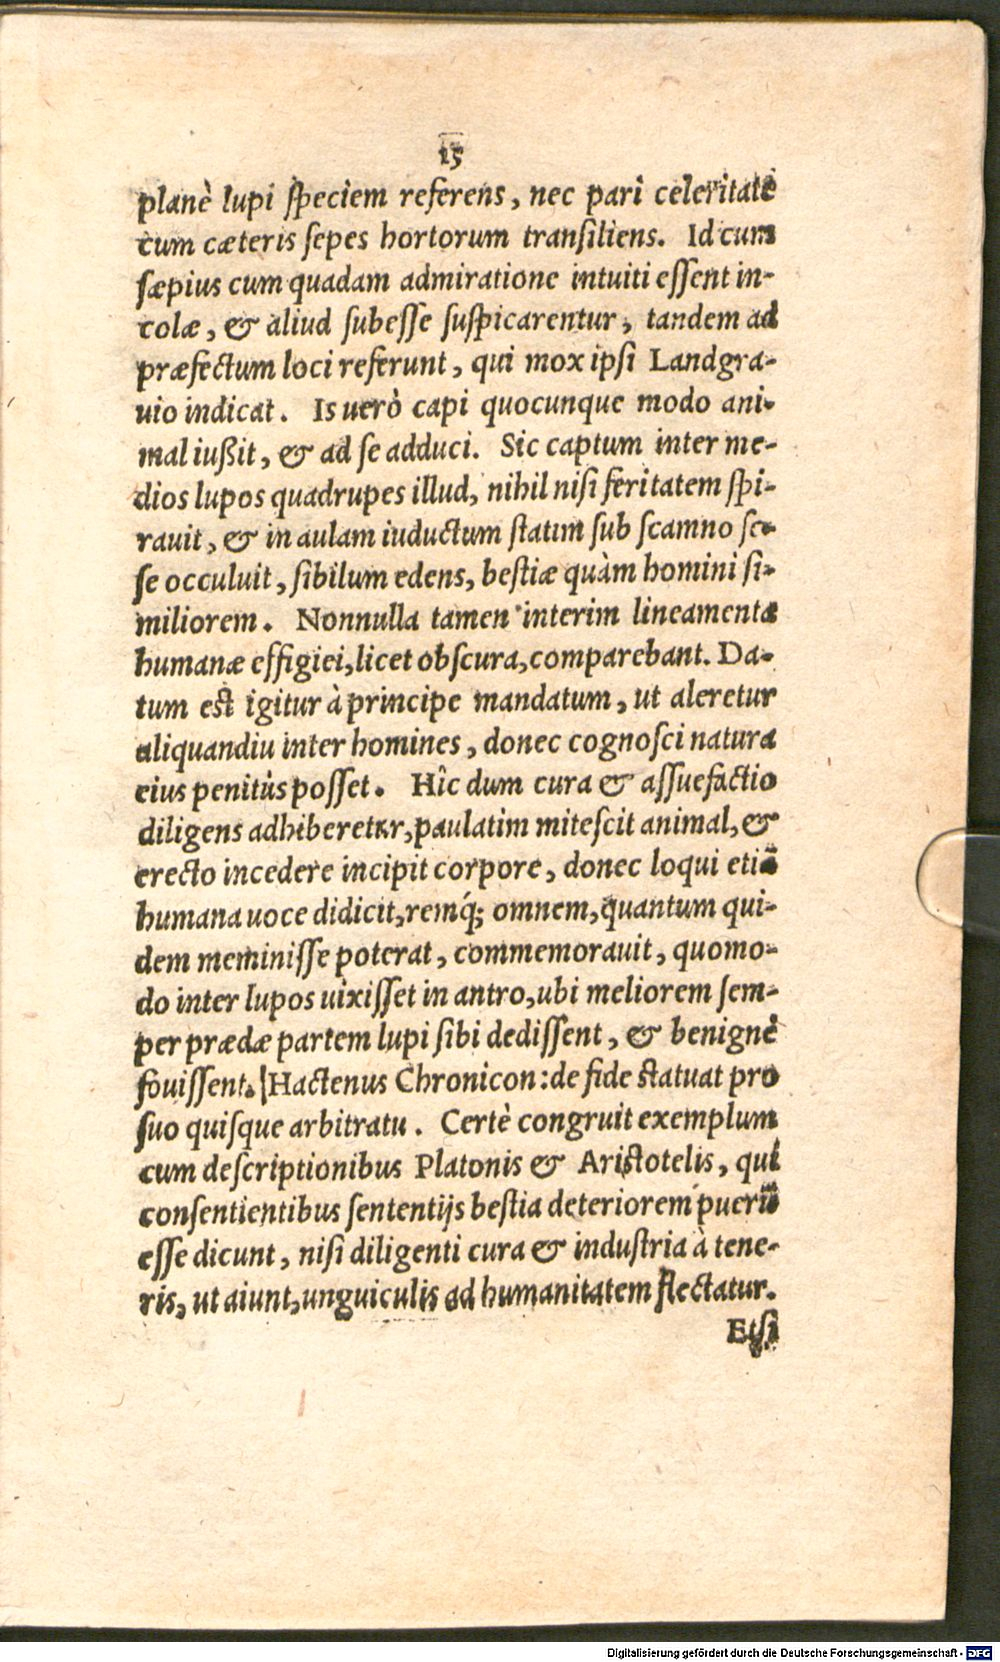 15
planè lupi speciem referens, nec pari celeritate
cum cæteris sepes hortorum transiliens. Id cum
sæpius cum quadam admiratione intuiti essent in-
colæ, & aliud subesse suspicarentur, tandem ad
præfectum loci referunt, qui mox ipsi Landgra-
uio indicat. Is uerò capi quocunque modo ani-
mal iußit, & ad se adduci. Sic captum inter me-
dios lupos quadrupes illud, nihil nisi feritatem spi-
rauit, & in aulam iuductum statim sub scamno se-
se occuluit, sibilum edens, bestiæ quàm homini si-
miliorem. Nonnulla tamen interim lineamenta
humanæ effigiei, licet obscura, comparebant. Da-
tum est igitur à principe mandatum, ut aleretur
aliquandiu inter homines, donec cognosci natura
eius penitùs posset. Hîc dum cura & assuefactio
diligens adhiberetur, paulatim mitescit animal, &
erecto incedere incipit corpore, donec loqui etiã
humana uoce didicit, remq́; omnem, quantum qui-
dem meminisse poterat, commemorauit, quomo-
do inter lupos uixisset in antro, ubi meliorem sem-
per prædæ partem lupi sibi dedissent, & benignè
fouissent. | Hactenus Chronicon: de fide statuat pro
suo quisque arbitratu. Certè congruit exemplum
cum descriptionibus Platonis & Aristotelis, qui
consentientibus sententijs bestia deteriorem puerũ
esse dicunt, nisi diligenti cura & industria à tene-
ris, ut aiunt, unguiculis ad humanitatem flectatur.
Etsi
Digitalisierung gefördert durch die Deutsche Forschungsgemeinschaft - DFG